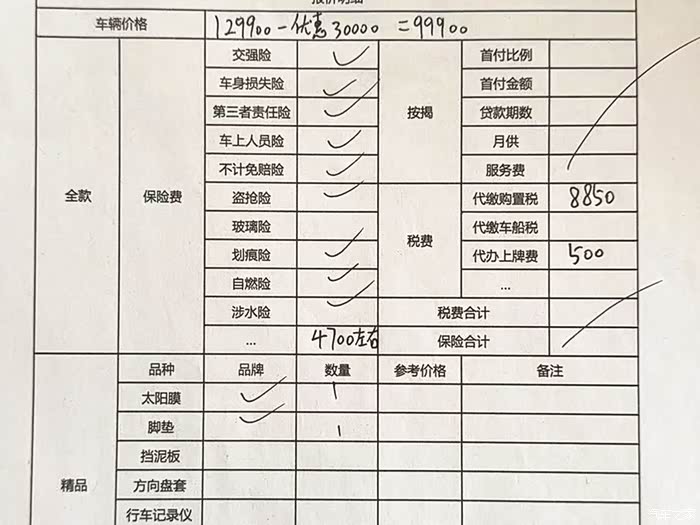 报价明细
车辆价格 129900-优惠30000=99900
全款 保险费 交强险 按揭 首付比例
车身损失险 首付金额
第三者责任险 贷款期数
车上人员险 月供
不计免赔险 服务费
盗抢险 税费 代缴购置税 8850
玻璃险 代缴车船税
划痕险 代办上牌费 500
自燃险 ...
涉水险 税费合计
... 4700左右 保险合计
精品 品种 品牌 数量 参考价格 备注
太阳膜 1
脚垫 1
挡泥板
方向盘套
行车记录仪
汽车之家